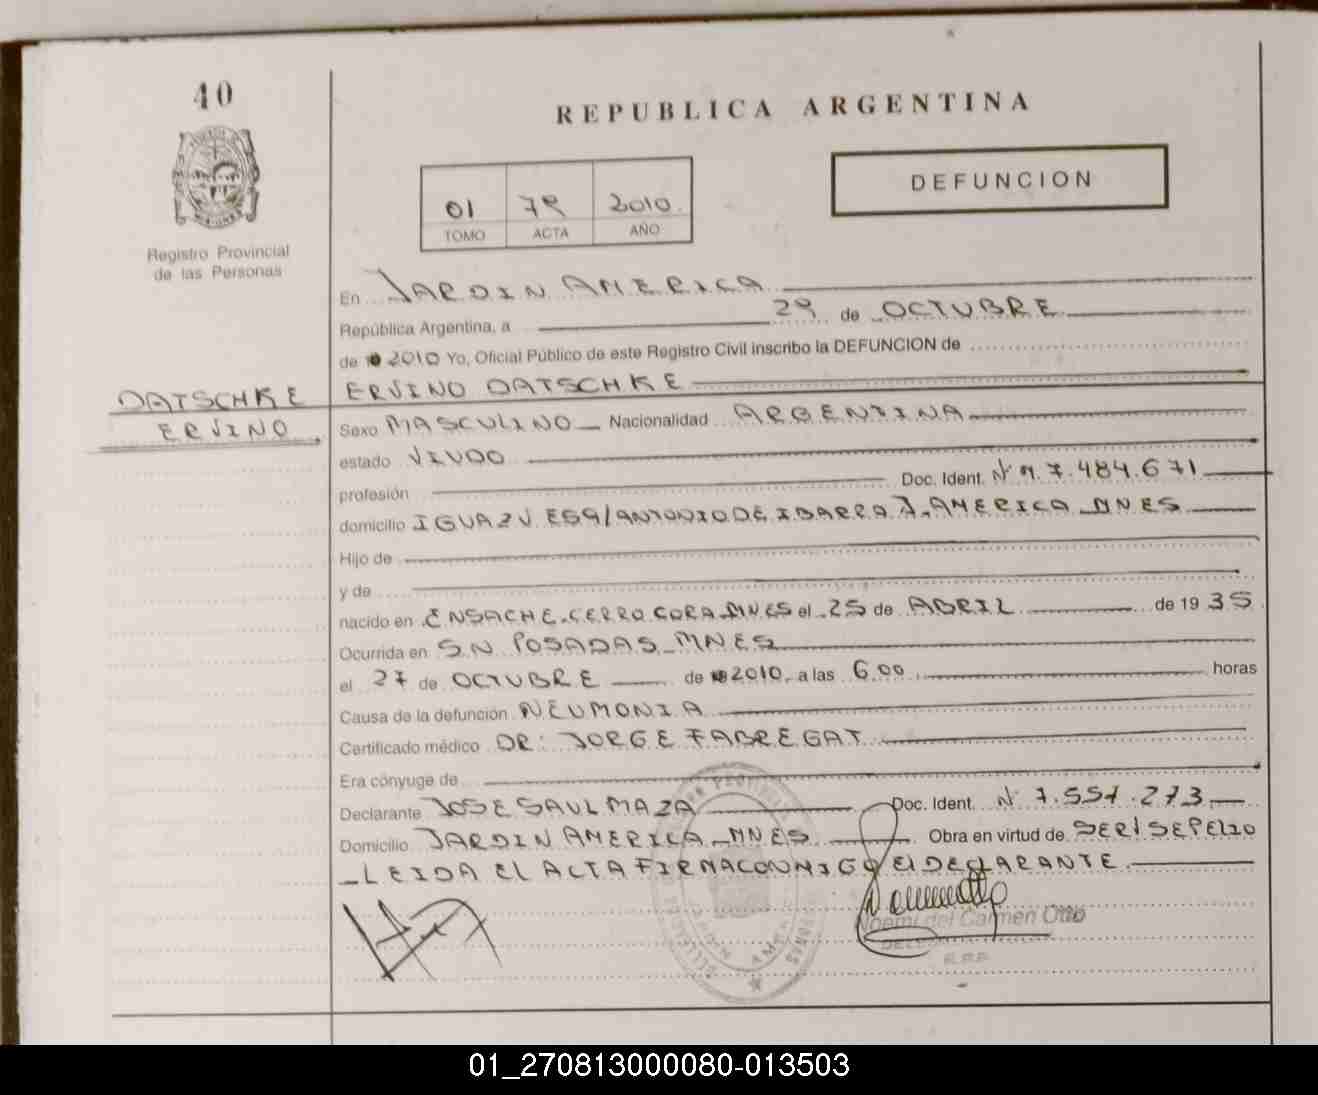 40
REPUBLICA ARGENTINA
DEFUNCION
01 79 2010
TOMO ACTA AÑO
Registro Provincial
de las Personas
En JARDIN AMERICA
República Argentina, a 29 de OCTUBRE
de 2010 Yo, Oficial Público de este Registro Civil inscribo la DEFUNCION de
DATSCHKE
ERVINO
ERVINO DATSCHKE
Sexo MASCULINO Nacionalidad ARGENTINA
estado VIUDO
profesión Doc. Ident. Nº M 7.484.671
domicilio IGUAZU ESQ/ANTONIO DE IBARRA J. AMERICA MNES
Hijo de
y de
nacido en ENSACHE-CERRO CORA MNES el 25 de ABRIL de 1935
Ocurrida en S.N POSADAS MNES
el 27 de OCTUBRE de 2010, a las 6.00 horas
Causa de la defunción NEUMONIA
Certificado médico DR: JORGE FABREGAT
Era cónyuge de
Declarante JOSE SAUL MAZA Doc. Ident. Nº 7.557.273
Domicilio JARDIN AMERICA MNES Obra en virtud de SER/SEPELIO
LEIDA EL ACTA FIRMA CONMIGO EL DECLARANTE
Noemi del Carmen Otto
R.P.P.
01_270813000080-013503